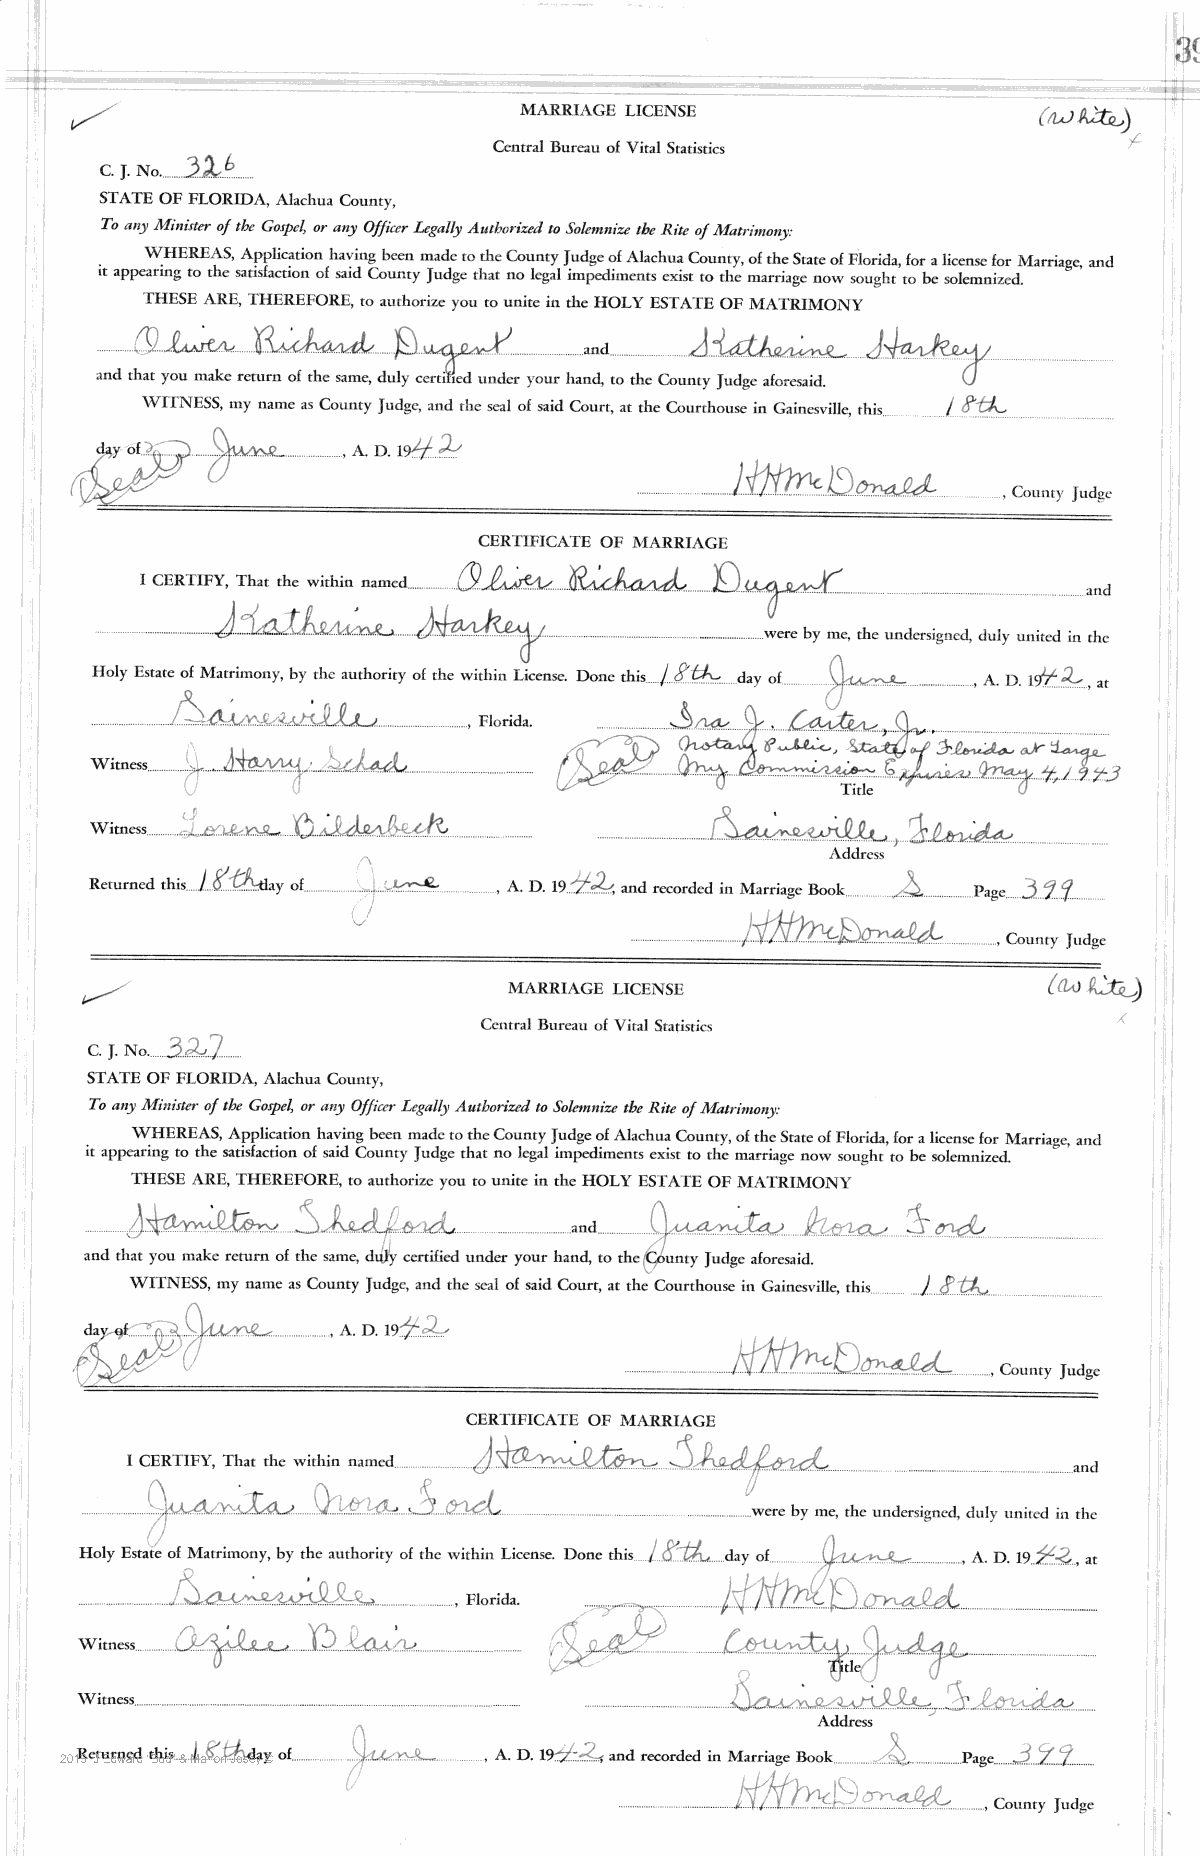 39
MARRIAGE LICENSE
(White)
Central Bureau of Vital Statistics
C. J. No. 326
STATE OF FLORIDA, Alachua County,
To any Minister of the Gospel, or any Officer Legally Authorized to Solemnize the Rite of Matrimony:
WHEREAS, Application having been made to the County Judge of Alachua County, of the State of Florida, for a license for Marriage, and
it appearing to the satisfaction of said County Judge that no legal impediments exist to the marriage now sought to be solemnized.
THESE ARE, THEREFORE, to authorize you to unite in the HOLY ESTATE OF MATRIMONY
Oliver Richard Dugent and Katherine Harkey
and that you make return of the same, duly certified under your hand, to the County Judge aforesaid.
WITNESS, my name as County Judge, and the seal of said Court, at the Courthouse in Gainesville, this 18th
day of June, A. D. 1942
Seal
HHMcDonald, County Judge
CERTIFICATE OF MARRIAGE
I CERTIFY, That the within named Oliver Richard Dugent and
Katherine Harkey were by me, the undersigned, duly united in the
Holy Estate of Matrimony, by the authority of the within License. Done this 18th day of June, A. D. 1942, at
Gainesville, Florida. Ira J. Carter, Jr.
Notary Public, State of Florida at Large
Witness J. Harry Schad Seal My Commission Expires May 4, 1943
Title
Witness Lorene Bilderbeck Gainesville, Florida
Address
Returned this 18th day of June, A. D. 1942, and recorded in Marriage Book S Page 399
HHMcDonald, County Judge
MARRIAGE LICENSE
(White)
Central Bureau of Vital Statistics
C. J. No. 327
STATE OF FLORIDA, Alachua County,
To any Minister of the Gospel, or any Officer Legally Authorized to Solemnize the Rite of Matrimony:
WHEREAS, Application having been made to the County Judge of Alachua County, of the State of Florida, for a license for Marriage, and
it appearing to the satisfaction of said County Judge that no legal impediments exist to the marriage now sought to be solemnized.
THESE ARE, THEREFORE, to authorize you to unite in the HOLY ESTATE OF MATRIMONY
Hamilton Thedford and Juanita Nora Ford
and that you make return of the same, duly certified under your hand, to the County Judge aforesaid.
WITNESS, my name as County Judge, and the seal of said Court, at the Courthouse in Gainesville, this 18th
day of June, A. D. 1942
Seal
HHMcDonald, County Judge
CERTIFICATE OF MARRIAGE
I CERTIFY, That the within named Hamilton Thedford and
Juanita Nora Ford were by me, the undersigned, duly united in the
Holy Estate of Matrimony, by the authority of the within License. Done this 18th day of June, A. D. 1942, at
Gainesville, Florida. HHMcDonald
Witness Azilee Blair Seal County Judge
Title
Witness Gainesville, Florida
Address
Returned this 18th day of June, A. D. 1942, and recorded in Marriage Book S Page 399
HHMcDonald, County Judge